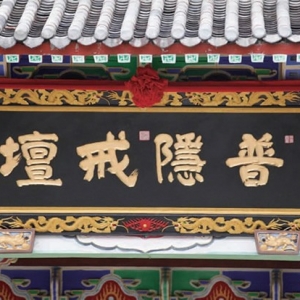 普隱戒壇